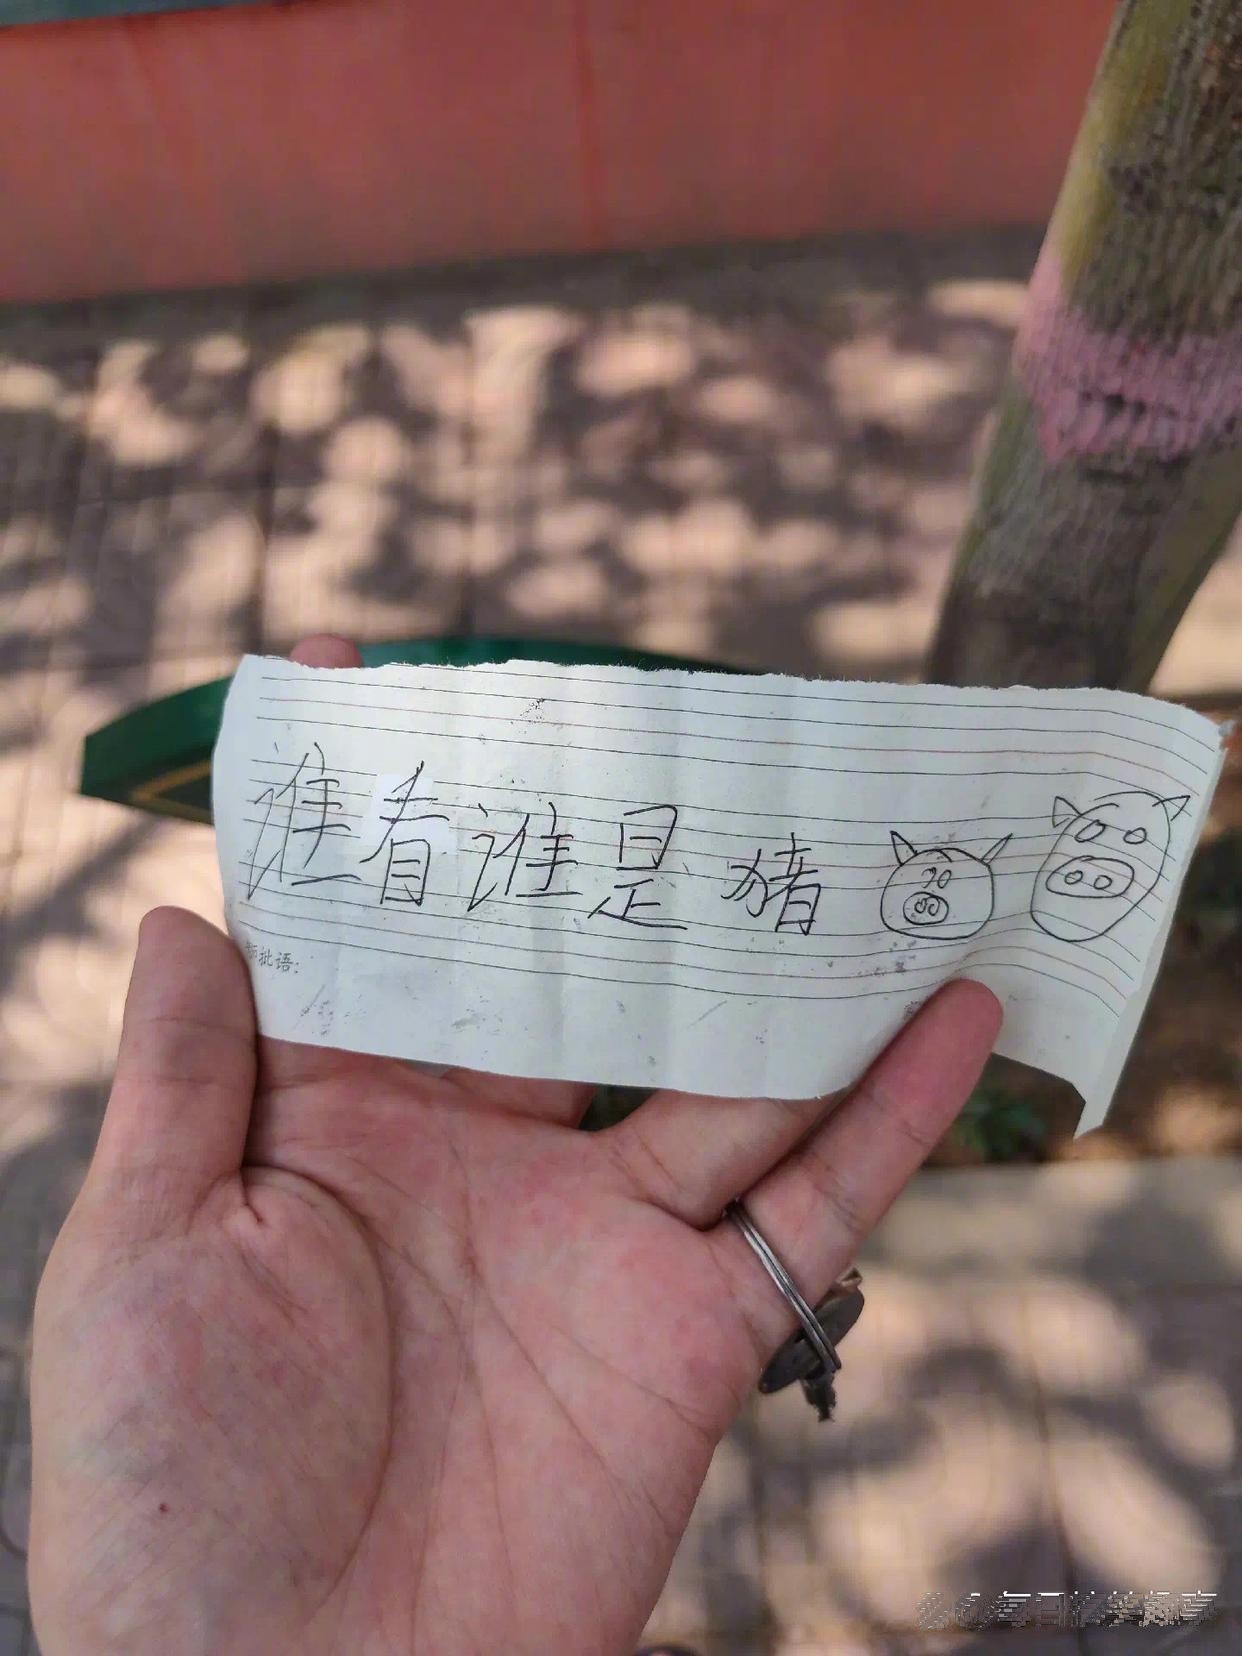 谁看谁是猪
师批语：
@每日搞笑趣事